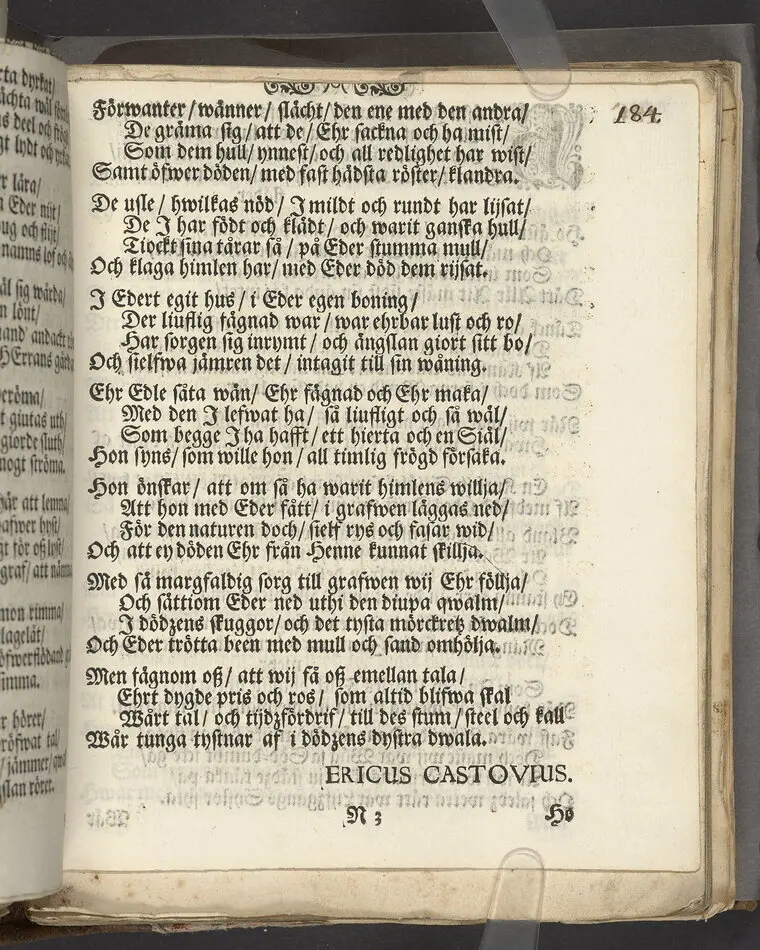 184.
Förwanter/ wänner/ slächt/ den ene med den andra/
De gräma sig/ att de/ Ehr sackna och ha mist/
Som dem hull/ ynnest/ och all redlighet har wist/
Samt öfwer döden/ med fast hådsta röster/ klandra.
De usle/ hwilkas nöd/ J mildt och rundt har lijsat/
De J har födt och klädt/ och warit ganska hull/
Tiockt sina tårar så/ på Eder stumma mull/
Och klaga himlen har/ med Eder död dem rijsat.
J Edert egit hus/ i Eder egen boning/
Der liuflig fägnad war/ war ehrbar lust och ro/
Har sorgen sig inrymt/ och ängslan giort sitt bo/
Och sielfwa jämren det/ intagit till sin wåning.
Ehr Edle såta wän/ Ehr fägnad och Ehr maka/
Med den J lefwat ha/ så liufligt och så wäl/
Som begge J ha hafft/ ett hierta och en Siäl/
Hon syns/ som wille hon/ all timlig frögd försaka.
Hon önskar/ att om så ha warit himlens willja/
Att hon med Eder fått/ i grafwen läggas ned/
För den naturen doch/ sielf rys och fasar wid/
Och att ey döden Ehr från Henne kunnat skillja.
Med så margfaldig sorg till grafwen wij Ehr föllja/
Och sättiom Eder ned uthi den diupa qwalm/
J dödzens skuggor/ och det tysta mörckretz dwalm/
Och Eder trötta been med mull och sand omhölja.
Men fägnom oß/ att wij få oß emellan tala/
Ehrt dygde pris och ros/ som altid blifwa skal
Wårt tal/ och tijdzfördrif/ till des stum/ steel och kall
Wår tunga tystnar af i dödzens dystra dwala.
ERICUS CASTOVIUS.
N 3 Ho